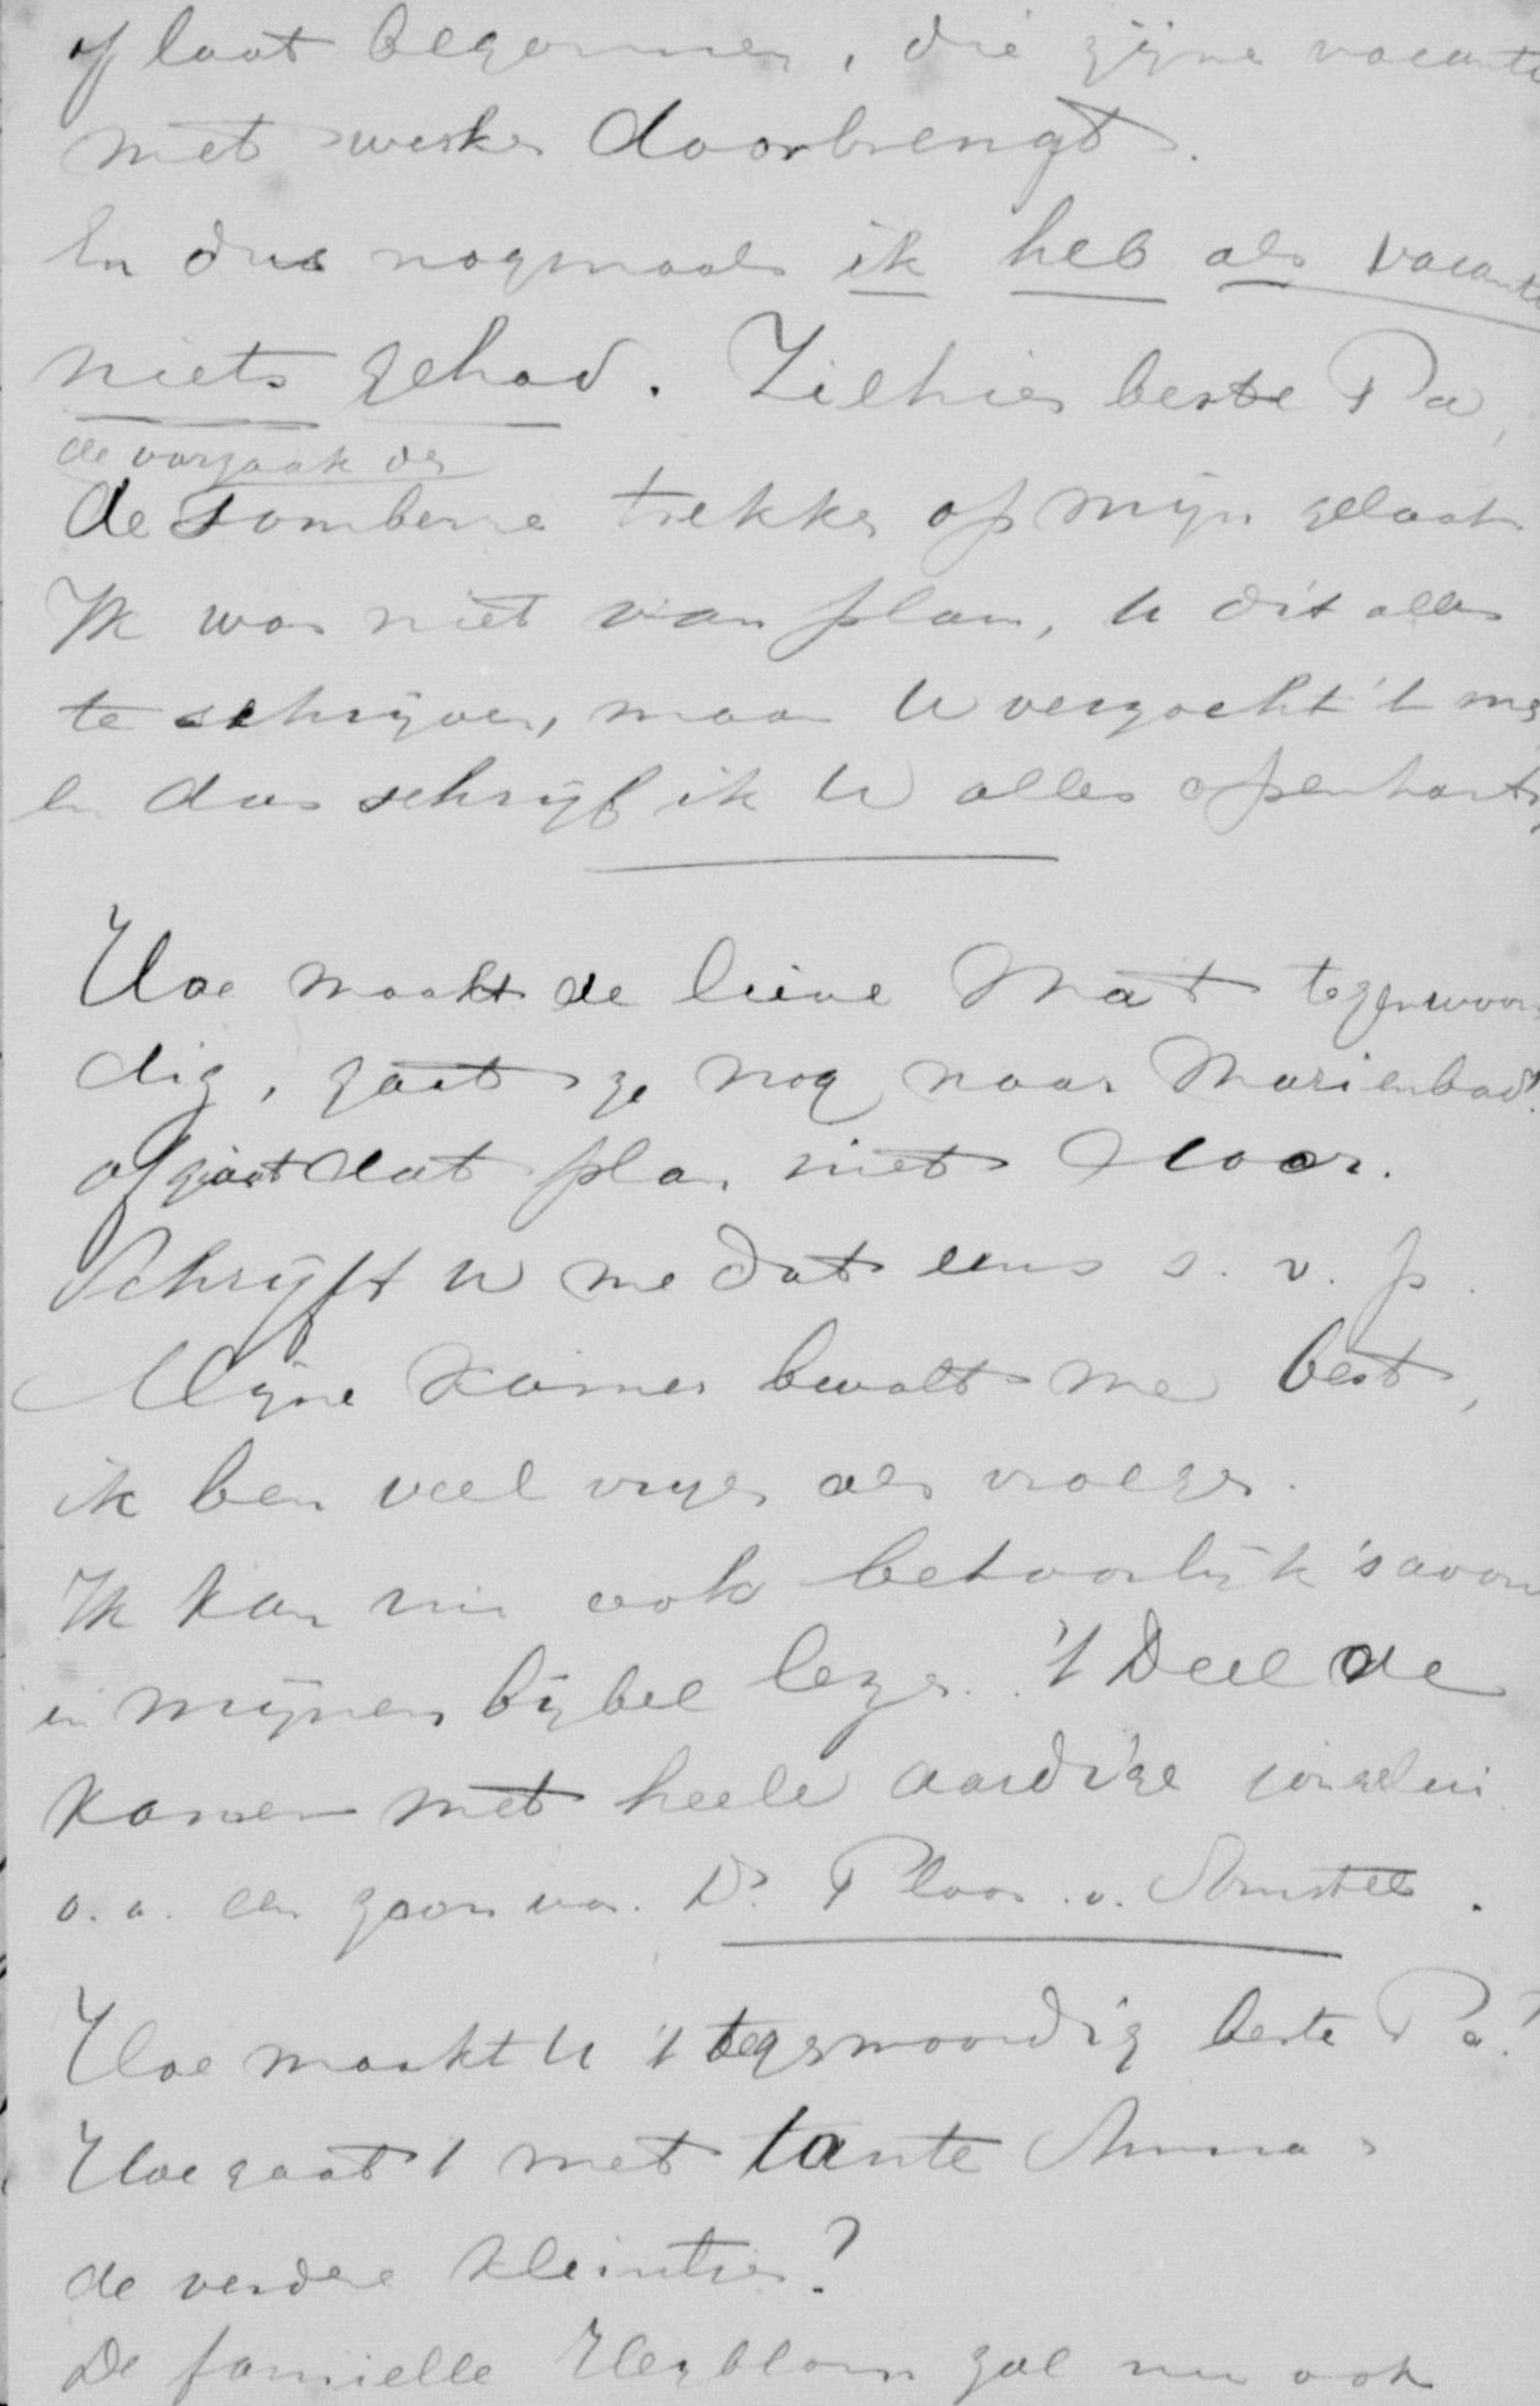 of laat begonnen, die zijne vacantie
met werken doorbrengt.
En dus nogmaals ik heb als vacantie
niets gehad. Ziehier beste Pa,
de oorzaak der
de sombere trekken op mijn gelaat.
Ik was niet van plan, U dit alles
te schrijven, maar U verzocht 't me
en dus schrijf ik U alles openhartig
Hoe maakt de lieve Ma 't tegenwoor
dig, gaat ze nog naar Marienbad?
of gaat dat plan niet door.
Schrijft U me dat eens s. v. p.
Mijne kamer bevalt me best,
ik ben veel vrijer als vroeger.
Ik kan nu ook behoorlijk 's avonds
in mijnen bijbel lezen. 't Deel de
kamer met heele aardige jongelui
o. a. een zoon van Dr. Ploos v. Amstel.
Hoe maakt U 't tegenwoordig beste Pa?
Hoe gaat 't met tante Anna
de verdere kleintjes?
De familie zal nu ook